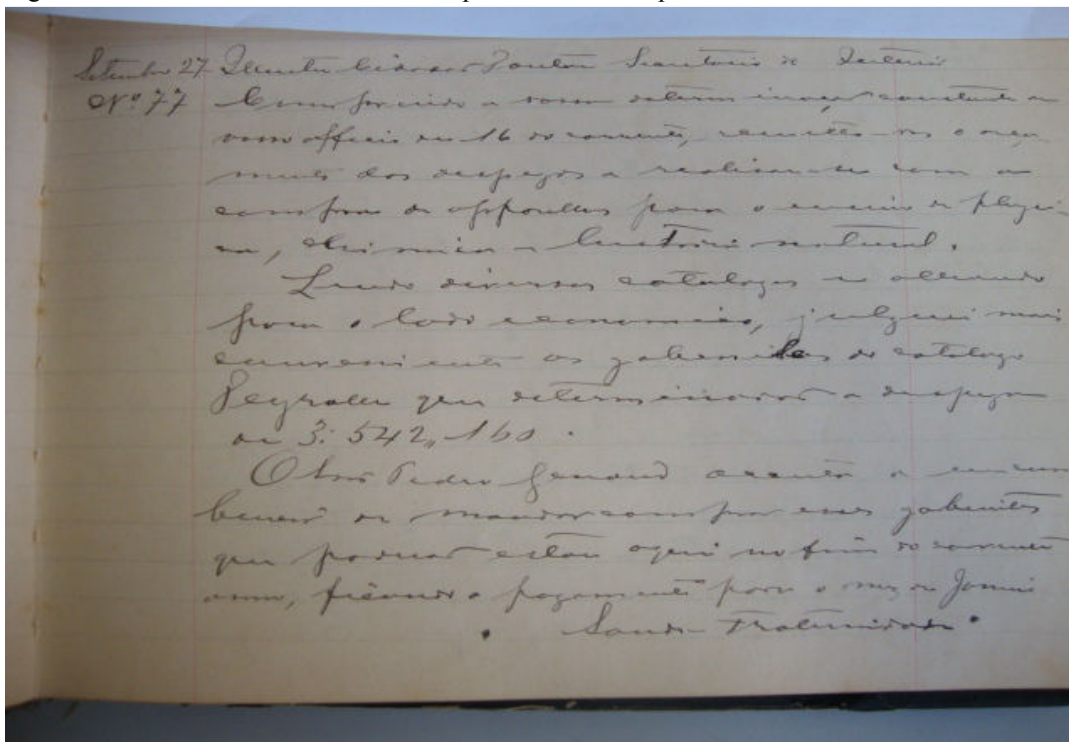 Setembro 27 Illustre Cidadão Doutor Secretario do Interior
Nº 77 Cumprindo a vossa determinação constante em
vosso officio de 16 do corrente, remetto-vos o orça-
mento das despezas a realisar-se com a
compra de apparelhos para o ensino de physi-
ca, chimica e historia natural.
Lendo diversos catalogos e olhando
para o lado economico, julguei mais
conveniente os gabinetes do catalogo
que determinaram a despeza
de 3:542,160.
O Snr Pedro Genoud acceita a incum
bencia de mandar comprar esses gabinetes
que poderão estar aqui no fim do corrente
anno, ficando o pagamento para o mez de Janeiro
Saude e Fraternidade.